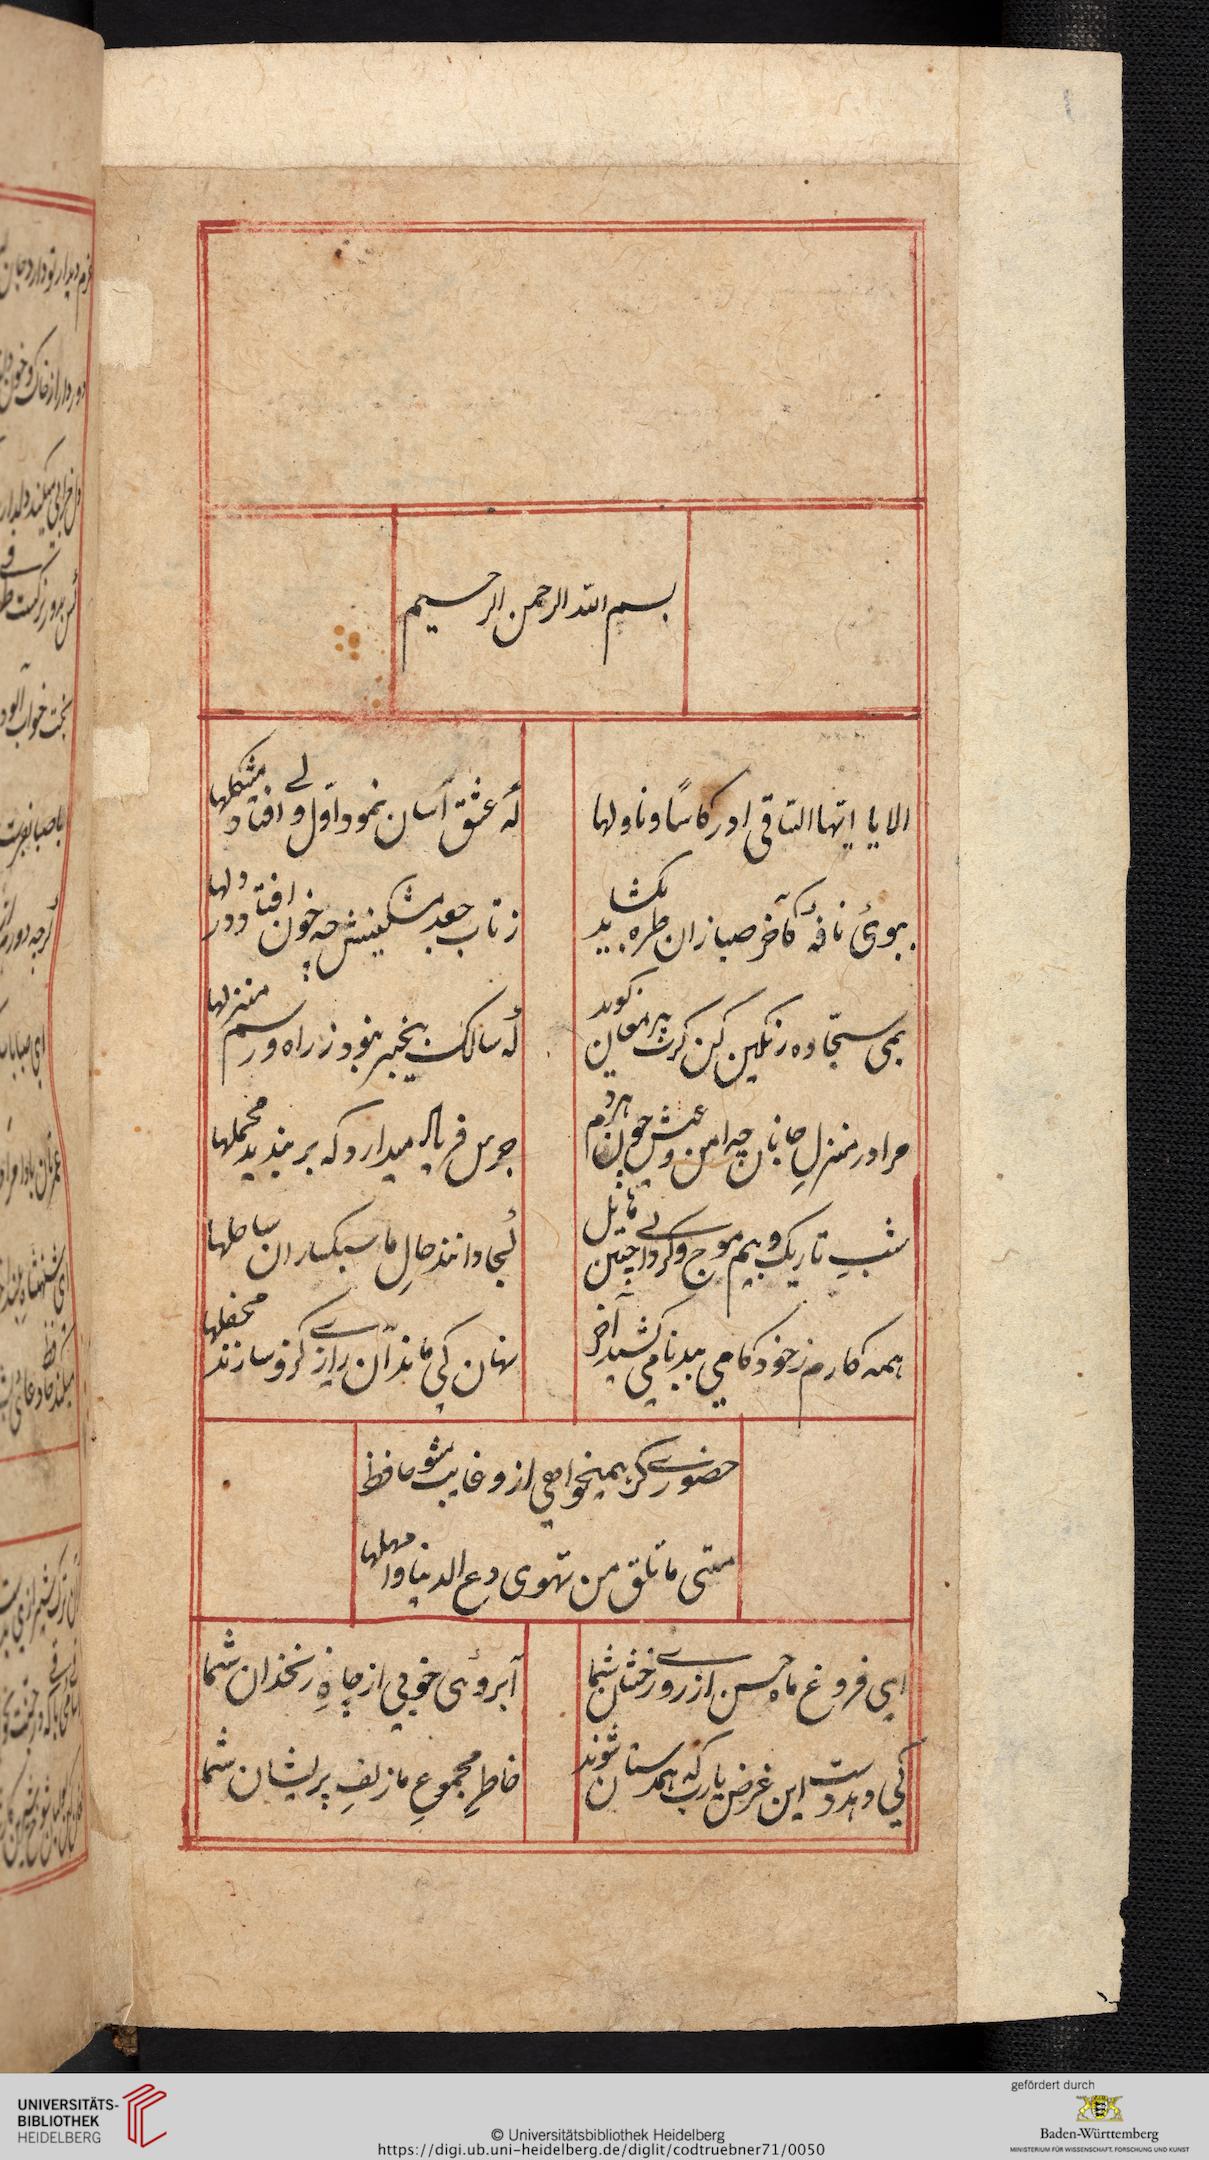 بسم الله الرحمن الرحیم
الا یا ایّها السّاقی ادر کاسًا و ناولها
که عشق آسان نمود اوّل ولے افتاد مشکلها
ببوئ نافهٔ کآخر صبا زان طره بکشاید
ز تاب جعد مشکینش چه خون افتاد در دلها
بمی سجّاده رنکین کن کرت پیر مغان کوید
که سالک بیخبر نبود ز راه و رسم منزلها
مرا در منزلِ جانان چه امن و عیش چون هردم
جرس فریاد میدارد که بربندید محملها
شبِ تاریک و بیم موج و کردابے چنین هائل
کجا دانند حالِ ما سبکساران ساحلها
همه کارم ز خود کامی ببدنامی کشید آخر
نهان کی ماند آن رازے کزو سازند محفلها
حضورے کر همیخواهی ازو غایب مشو حافظ
متی ما تلق من تهوی دع الدنیا و امهلها
ای فروغ ماه حسن از روے رخشان شما
آبروئ خوبی از چاهِ زنخدان شما
کی دهد دست این غرض یارب که همدستان شوند
خاطرِ مجموعِ ما زلفِ پریشان شما
UNIVERSITÄTS-
BIBLIOTHEK
HEIDELBERG
© Universitätsbibliothek Heidelberg
https://digi.ub.uni-heidelberg.de/diglit/codtruebner71/0050
gefördert durch
Baden-Württemberg
MINISTERIUM FÜR WISSENSCHAFT, FORSCHUNG UND KUNST